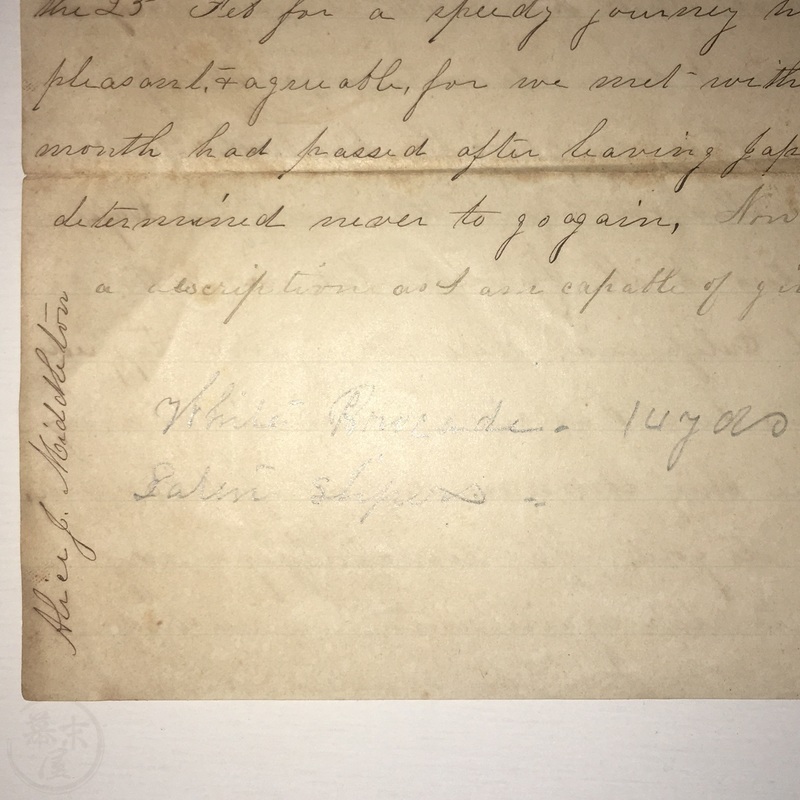 the 25 Feb for a speedy journey
pleasant, & agreeable, for we met with
month had passed after leaving Jap
determined never to go again, Now
a description as I am capable of gi
White Brocade. 14 yds
Saten slipers -
Alice J. Middleton
幕末屋